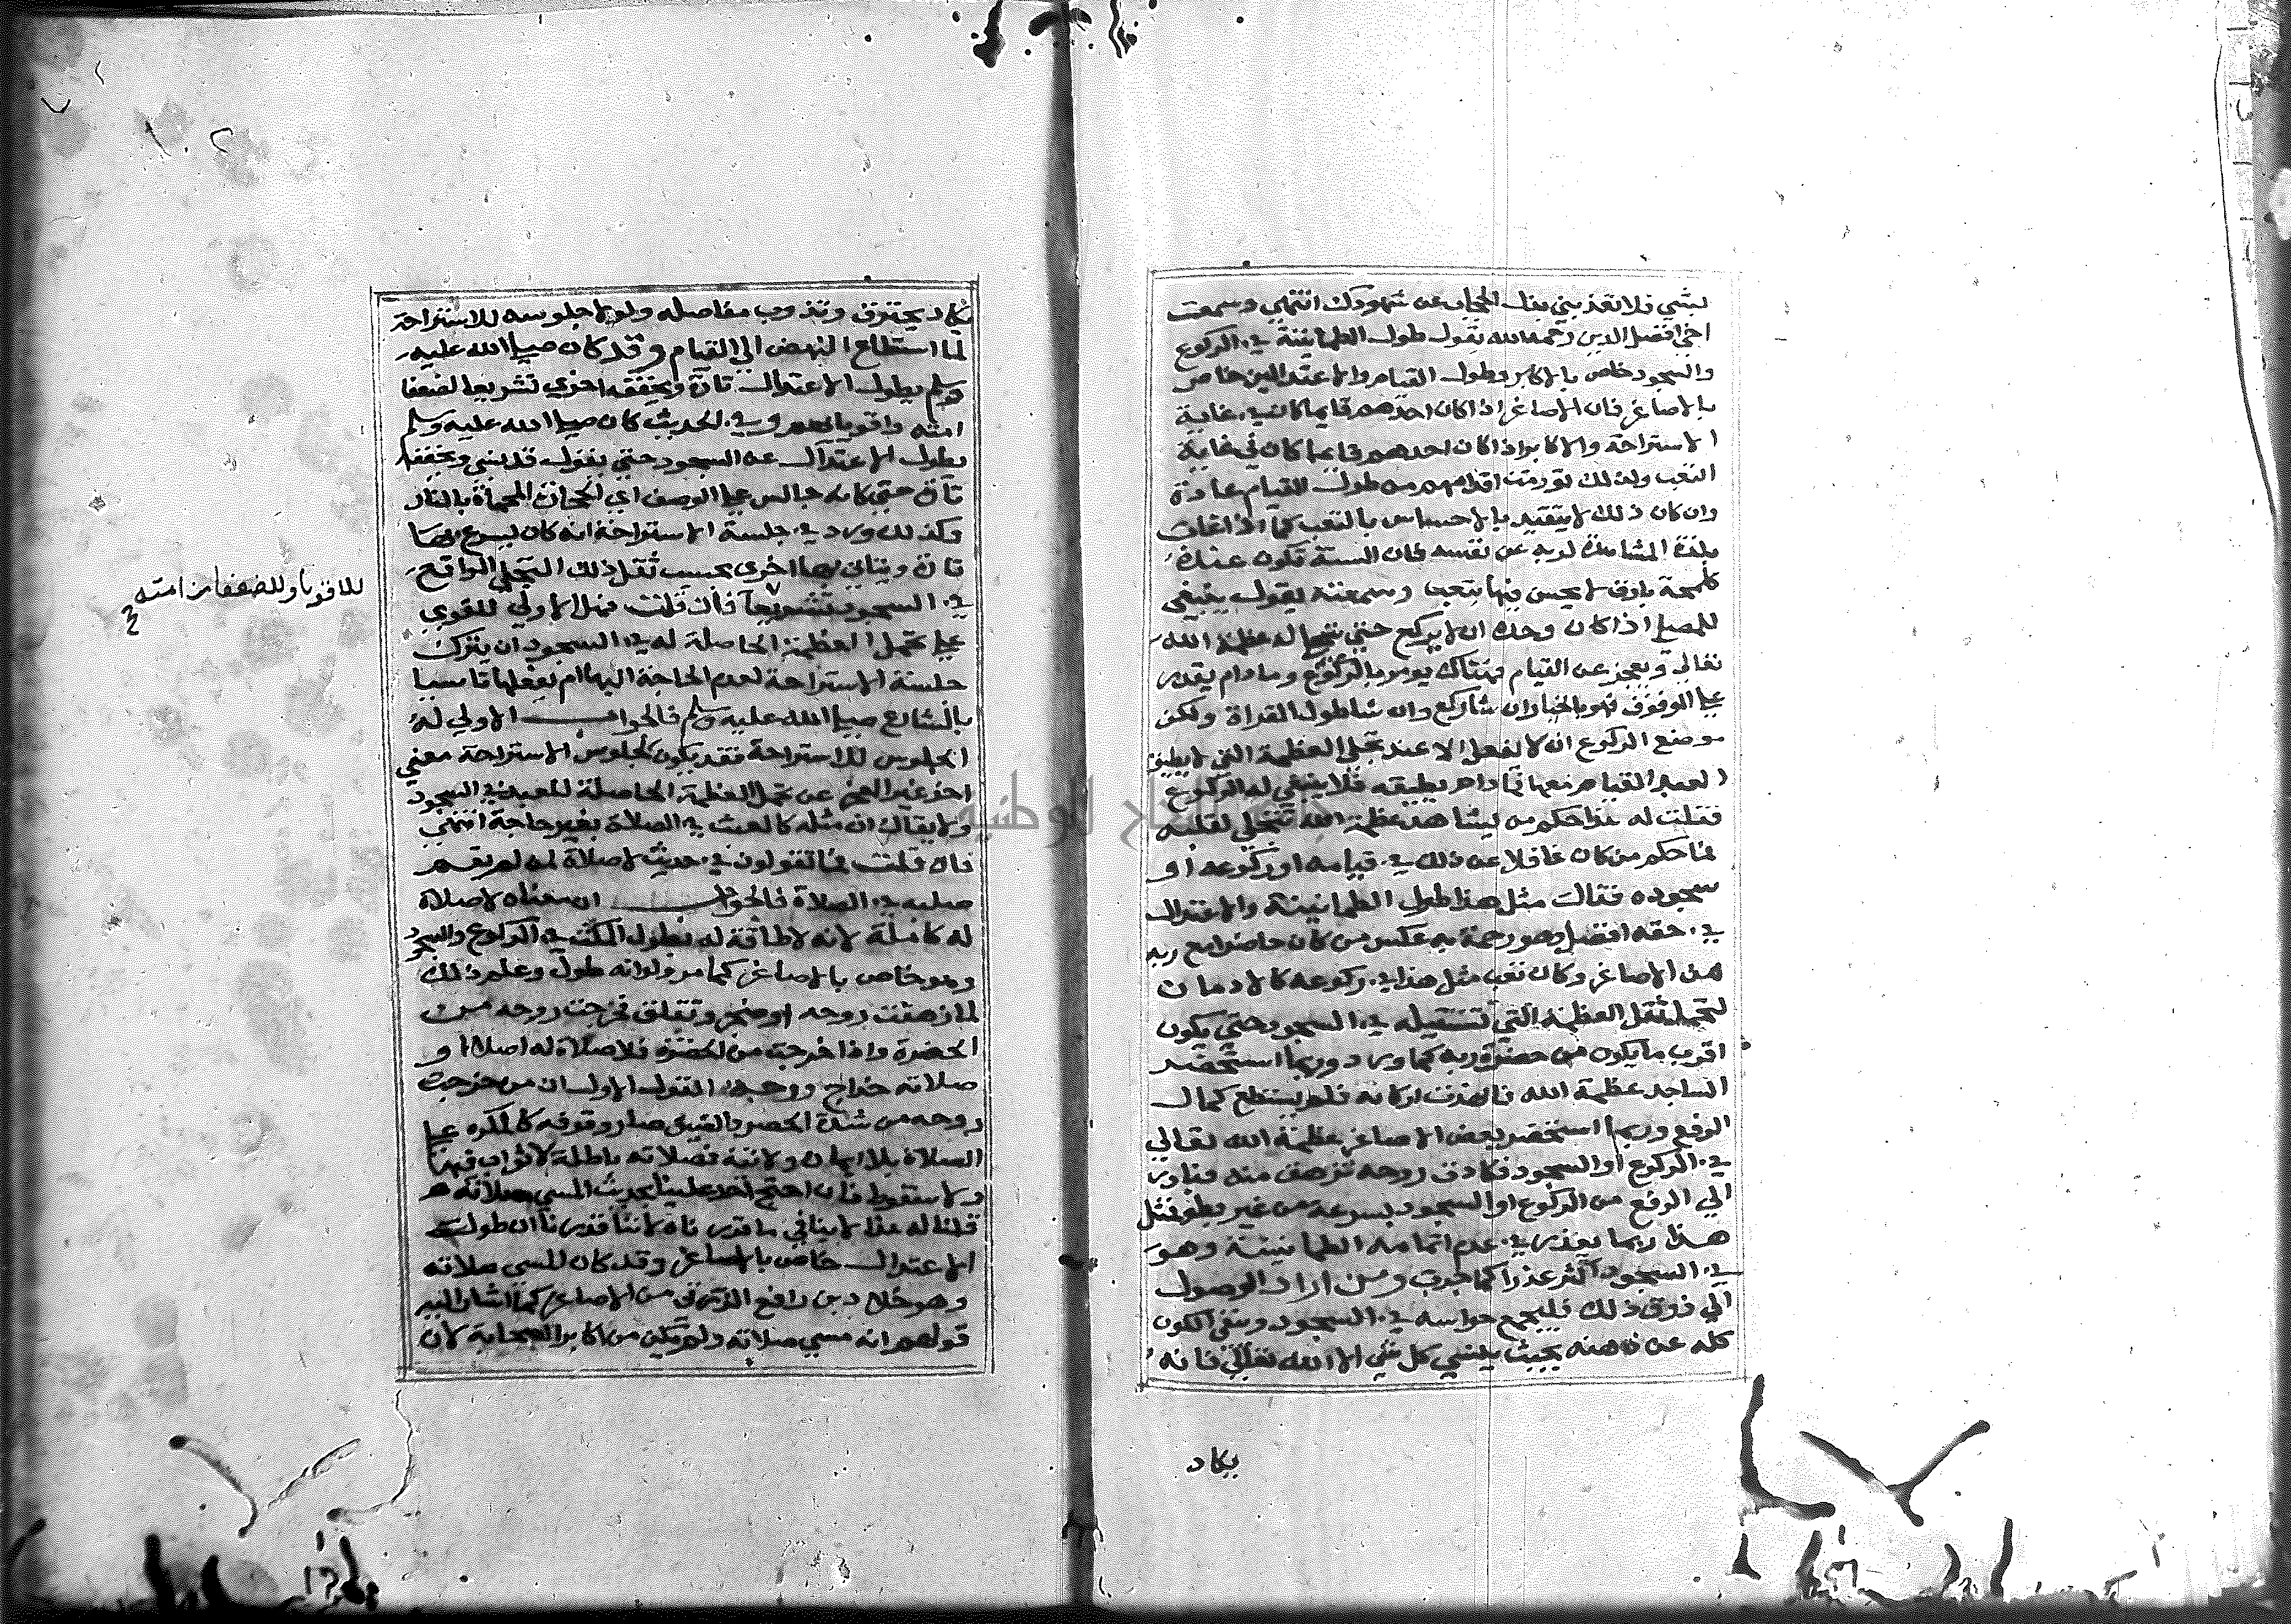 بشي فلا تعذبني بذل الحجاب عن شهودك انتهي وسمعت
اخي افضل الدين رحمه الله يقول طول الطمانينة في الركوع
والسجود خاص بالاكابر وطول القيام والاعتدالين خاص
بالاصاغر فان الاصاغر اذا كان احدهم قايما كان في غاية
الاستراحة والاكابر اذا كان احدهم قايما كان في غاية
التعب ولذلك تورمت اقدامهم من طول القيام عادة
وان كان ذلك لا يتقيد بالاحساس بالتعب كما اذا غاب
بلذة المشاهدة لربه عن نفسه فان السنة تكون عنده
كلمحة بارق لا يحس فيها بتعب وسمعته يقول ينبغي
للمصلي اذا كان وحده ان لا يركع حتي تتجلي له عظمة الله
تعالي ويعجز عن القيام فهناك يومر بالركوع وما دام يقدر
علي الوقوف فهو بالخيار ان شا ركع وان شا طول القراة ولكن
موضع الركوع ان لا يفعل الا عند تجلي العظمة التي لا يطيق
العبد القيام معها فما دام يطيقه فلا ينبغي له الركوع
فقلت له هذا حكم من يشاهد عظمة الله تتجلي لقلبه
فما حكم من كان غافلا عن ذلك في قيامه او ركوعه او
سجوده فقال مثل هذا طول الطمانينة والاعتدال
في حقه افضل وهو رحمة به عكس من كان حاضرا مع ربه
من الاصاغر وكان تعب مثل هذا في ركوعه كالادمان
لتحمل ثقل العظمة التي تستقبله في السجود حتي يكون
اقرب ما يكون من حضرة ربه كما ورد وربما استحضر
الساجد عظمة الله فانهدت اركانه فلم يستطع كمال
الرفع وربما استحضر بعض الاصاغر عظمة الله تعالي
في الركوع او السجود فكادت روحه تزهق منه فبادر
الي الرفع من الركوع او السجود بسرعة من غير بطو فمثل
هذا ربما يعذر في عدم اتمامه الطمانينة وهو
في السجود اكثر عذرا كما جرب ومن اراد الوصول
الي ذوق ذلك فليجمع حواسه في السجود وينفي الكون
كله عن ذهنه بحيث ينسي كل شي الا الله تعالي فانه
يكاد
يكاد يحترق وتذوب مفاصله ولولا جلوسه للاستراحة
لما استطاع النهض الي القيام وقد كان صلي الله عليه
وسلم يطول الاعتدال تارة ويخففه اخري تشريعا لضعفا
امته واقويائهم وفي الحديث كان صلي الله عليه وسلم
يطول الاعتدال عن السجود حتي يقول قد نسي ويخففه
تارة حتي كانه جالس علي الرصف اي الحجارة المحماة بالنار
وكذلك ورد في جلسة الاستراحة انه كان يسرع بها
تارة ويتاني بها اخري بحسب ثقل ذلك التجلي الواقع
في السجود تشريعا فان قلت فهل الاولي للقوي
للاقويا وللضعفا من امته
علي تحمل العظمة الحاصلة له في السجود ان يترك
جلسة الاستراحة لعدم الحاجة اليها ام يفعلها تاسيا
بالشارع صلي الله عليه وسلم فالجواب الاولي له
الجلوس للاستراحة فقد يكون لجلوس الاستراحة معني
اخر غير العجز عن تحمل العظمة الحاصلة للعبد في السجود
ولا يقال ان مثله كالعبث في الصلاة بغير حاجة انتهي
فان قلت فما تقولون في حديث لا صلاة لمن لم يقم
صلبه في الصلاة فالجواب ان معناه لا صلاة
له كاملة لانه لا طاقة له بطول المكث في الركوع والسجود
وهو خاص بالاصاغر كما مر ولو انه طول وعلم ذلك
لما زهقت روحه او ضجر وتقلق فخرجت روحه من
الحضرة واذا خرجت من الحضرة فلا صلاة له اصلا او
صلاته خداج ووجه القول الاول ان من خرجت
روحه من شدة الحصر والضيق صار وقوفه كالمكره علي
الصلاة بلا ايمان ولا نية فصلاته باطلة لا ثواب فيها
ولا سقوط فان احتج احد علينا بحديث المسي صلاته
قلنا له هذا لا ينافي ما قررناه لاننا قررنا ان طول
الاعتدال خاص بالاصاغر وقد كان المسي صلاته
وهو خلاد بن رافع الزرقي من الاصاغر كما اشار اليه
قولهم انه مسي صلاته ولم يكن من اكابر الصحابة لان